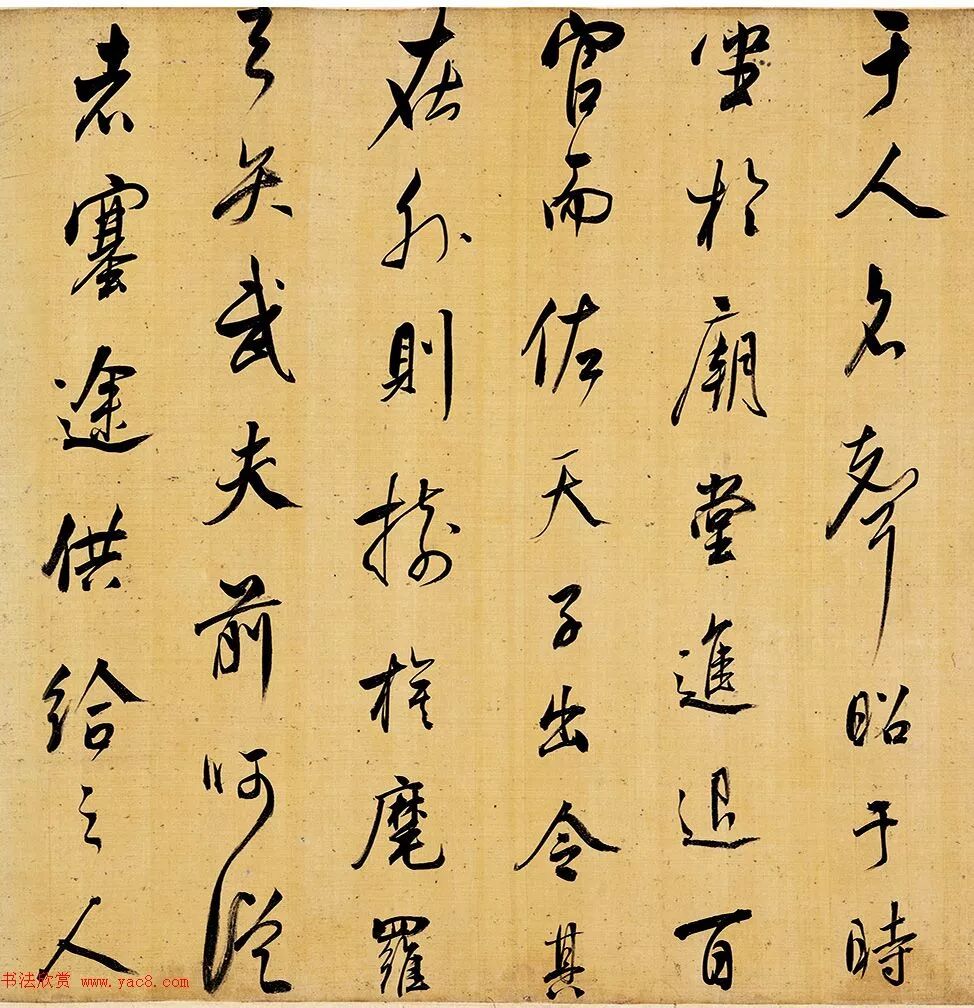 于人名聲昭于時
坐於廟堂進退百
官而佐天子出令其
在外則樹旗旄羅
弓矢武夫前呵從
者塞途供給之人
书法欣赏 www.yac8.com